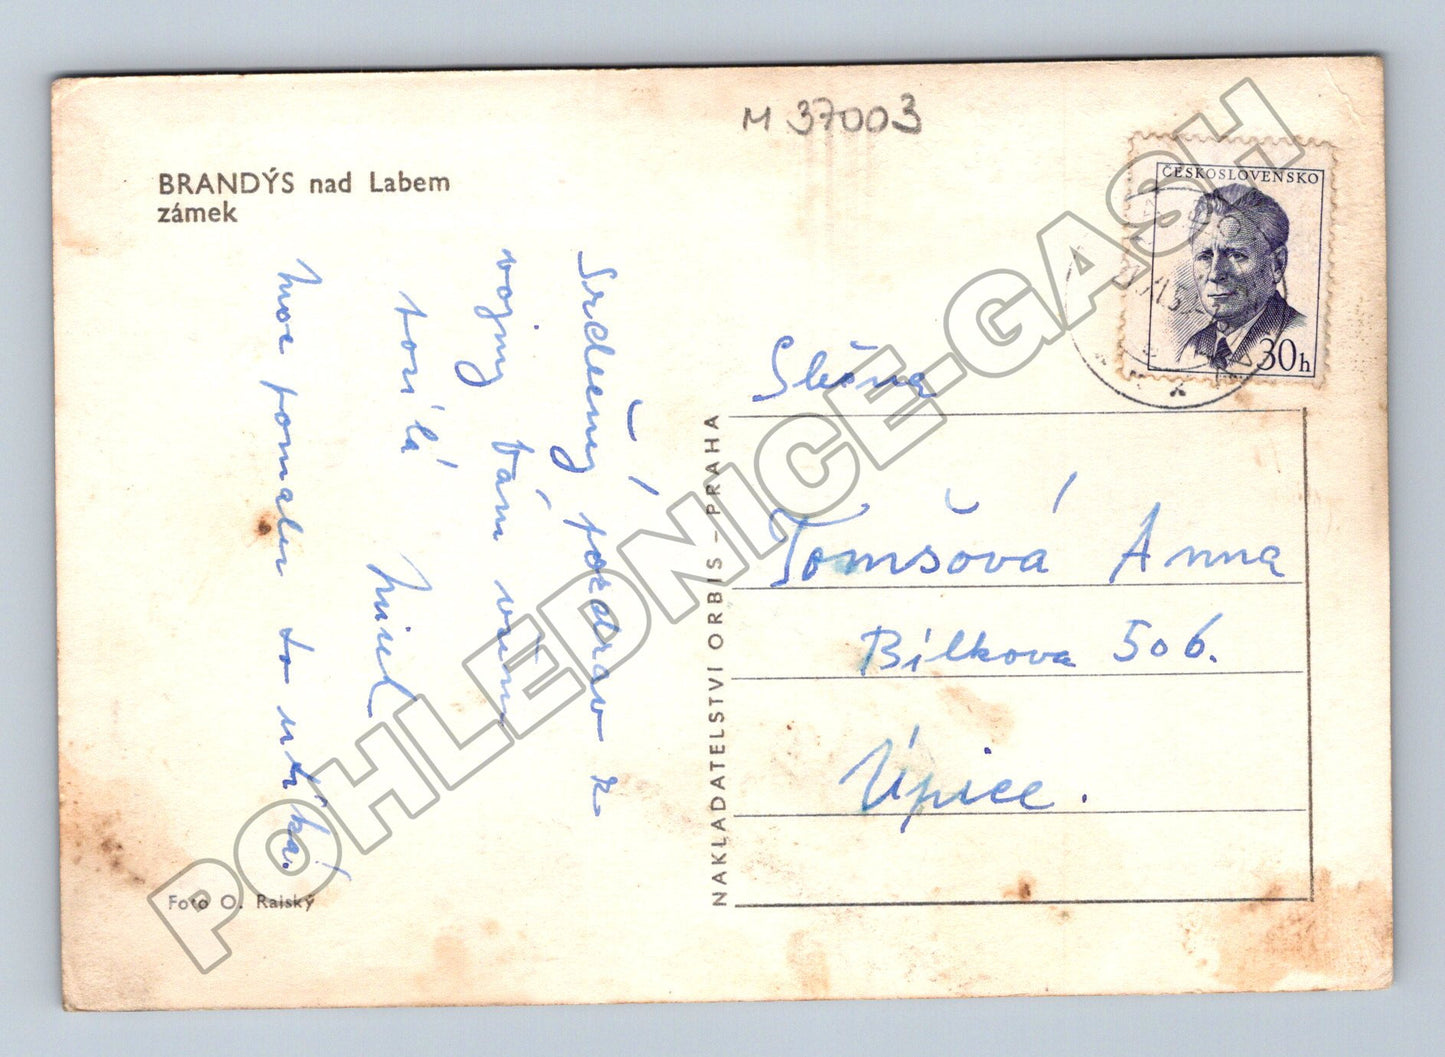 M 37003
BRANDÝS nad Labem
zámek
ČESKOSLOVENSKO
30h
Srdečný pozdrav z
vojny Vám všem
posílá
Mirek
moc pomalu to utíká!
Slečna
Tomšová Anna
Bílkova 506.
Úpice.
NAKLADATELSTVÍ ORBIS – PRAHA
Foto O. Rajský
POHLEDNICE-GASH